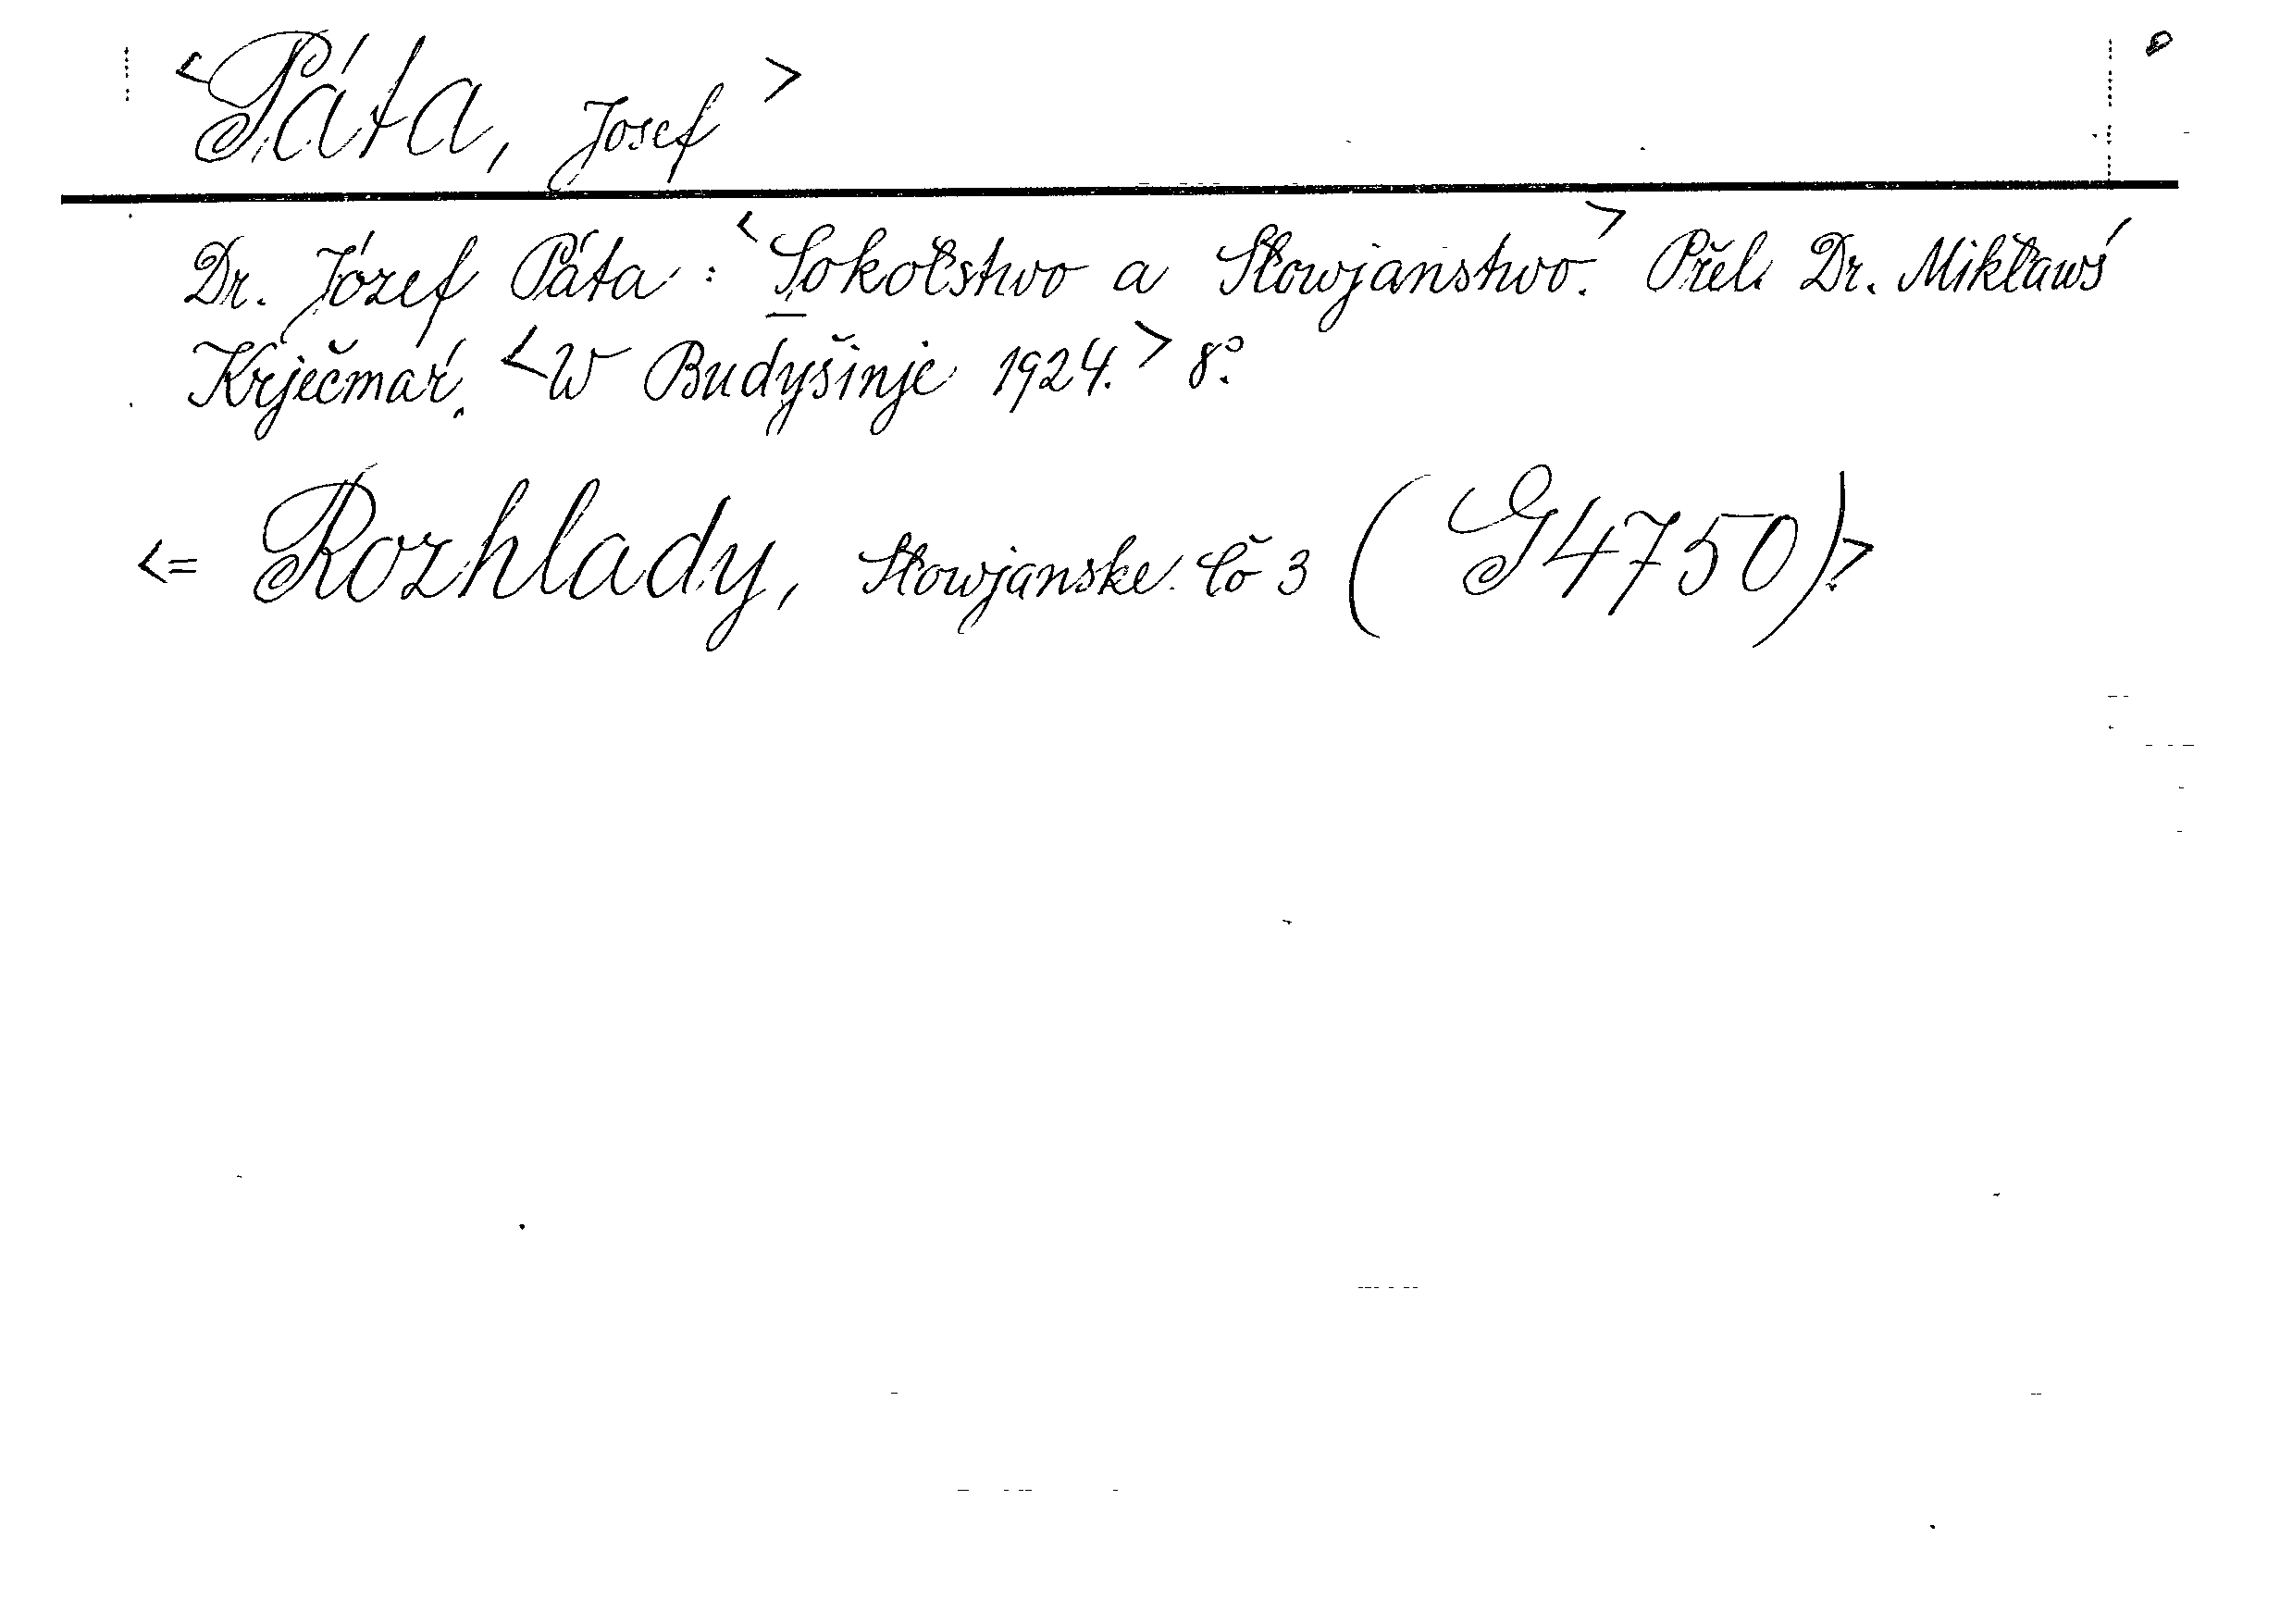 <Páta, Josef>
Dr. Józef Páta: <Sokołstwo a Słowjanstwo.> Přeł. Dr. Mikławś
Krječmaŕ. <W Budyšinje 1924.> 8°.
<= Rozhlady, Słowjanske. Čo 3 (G4750).>